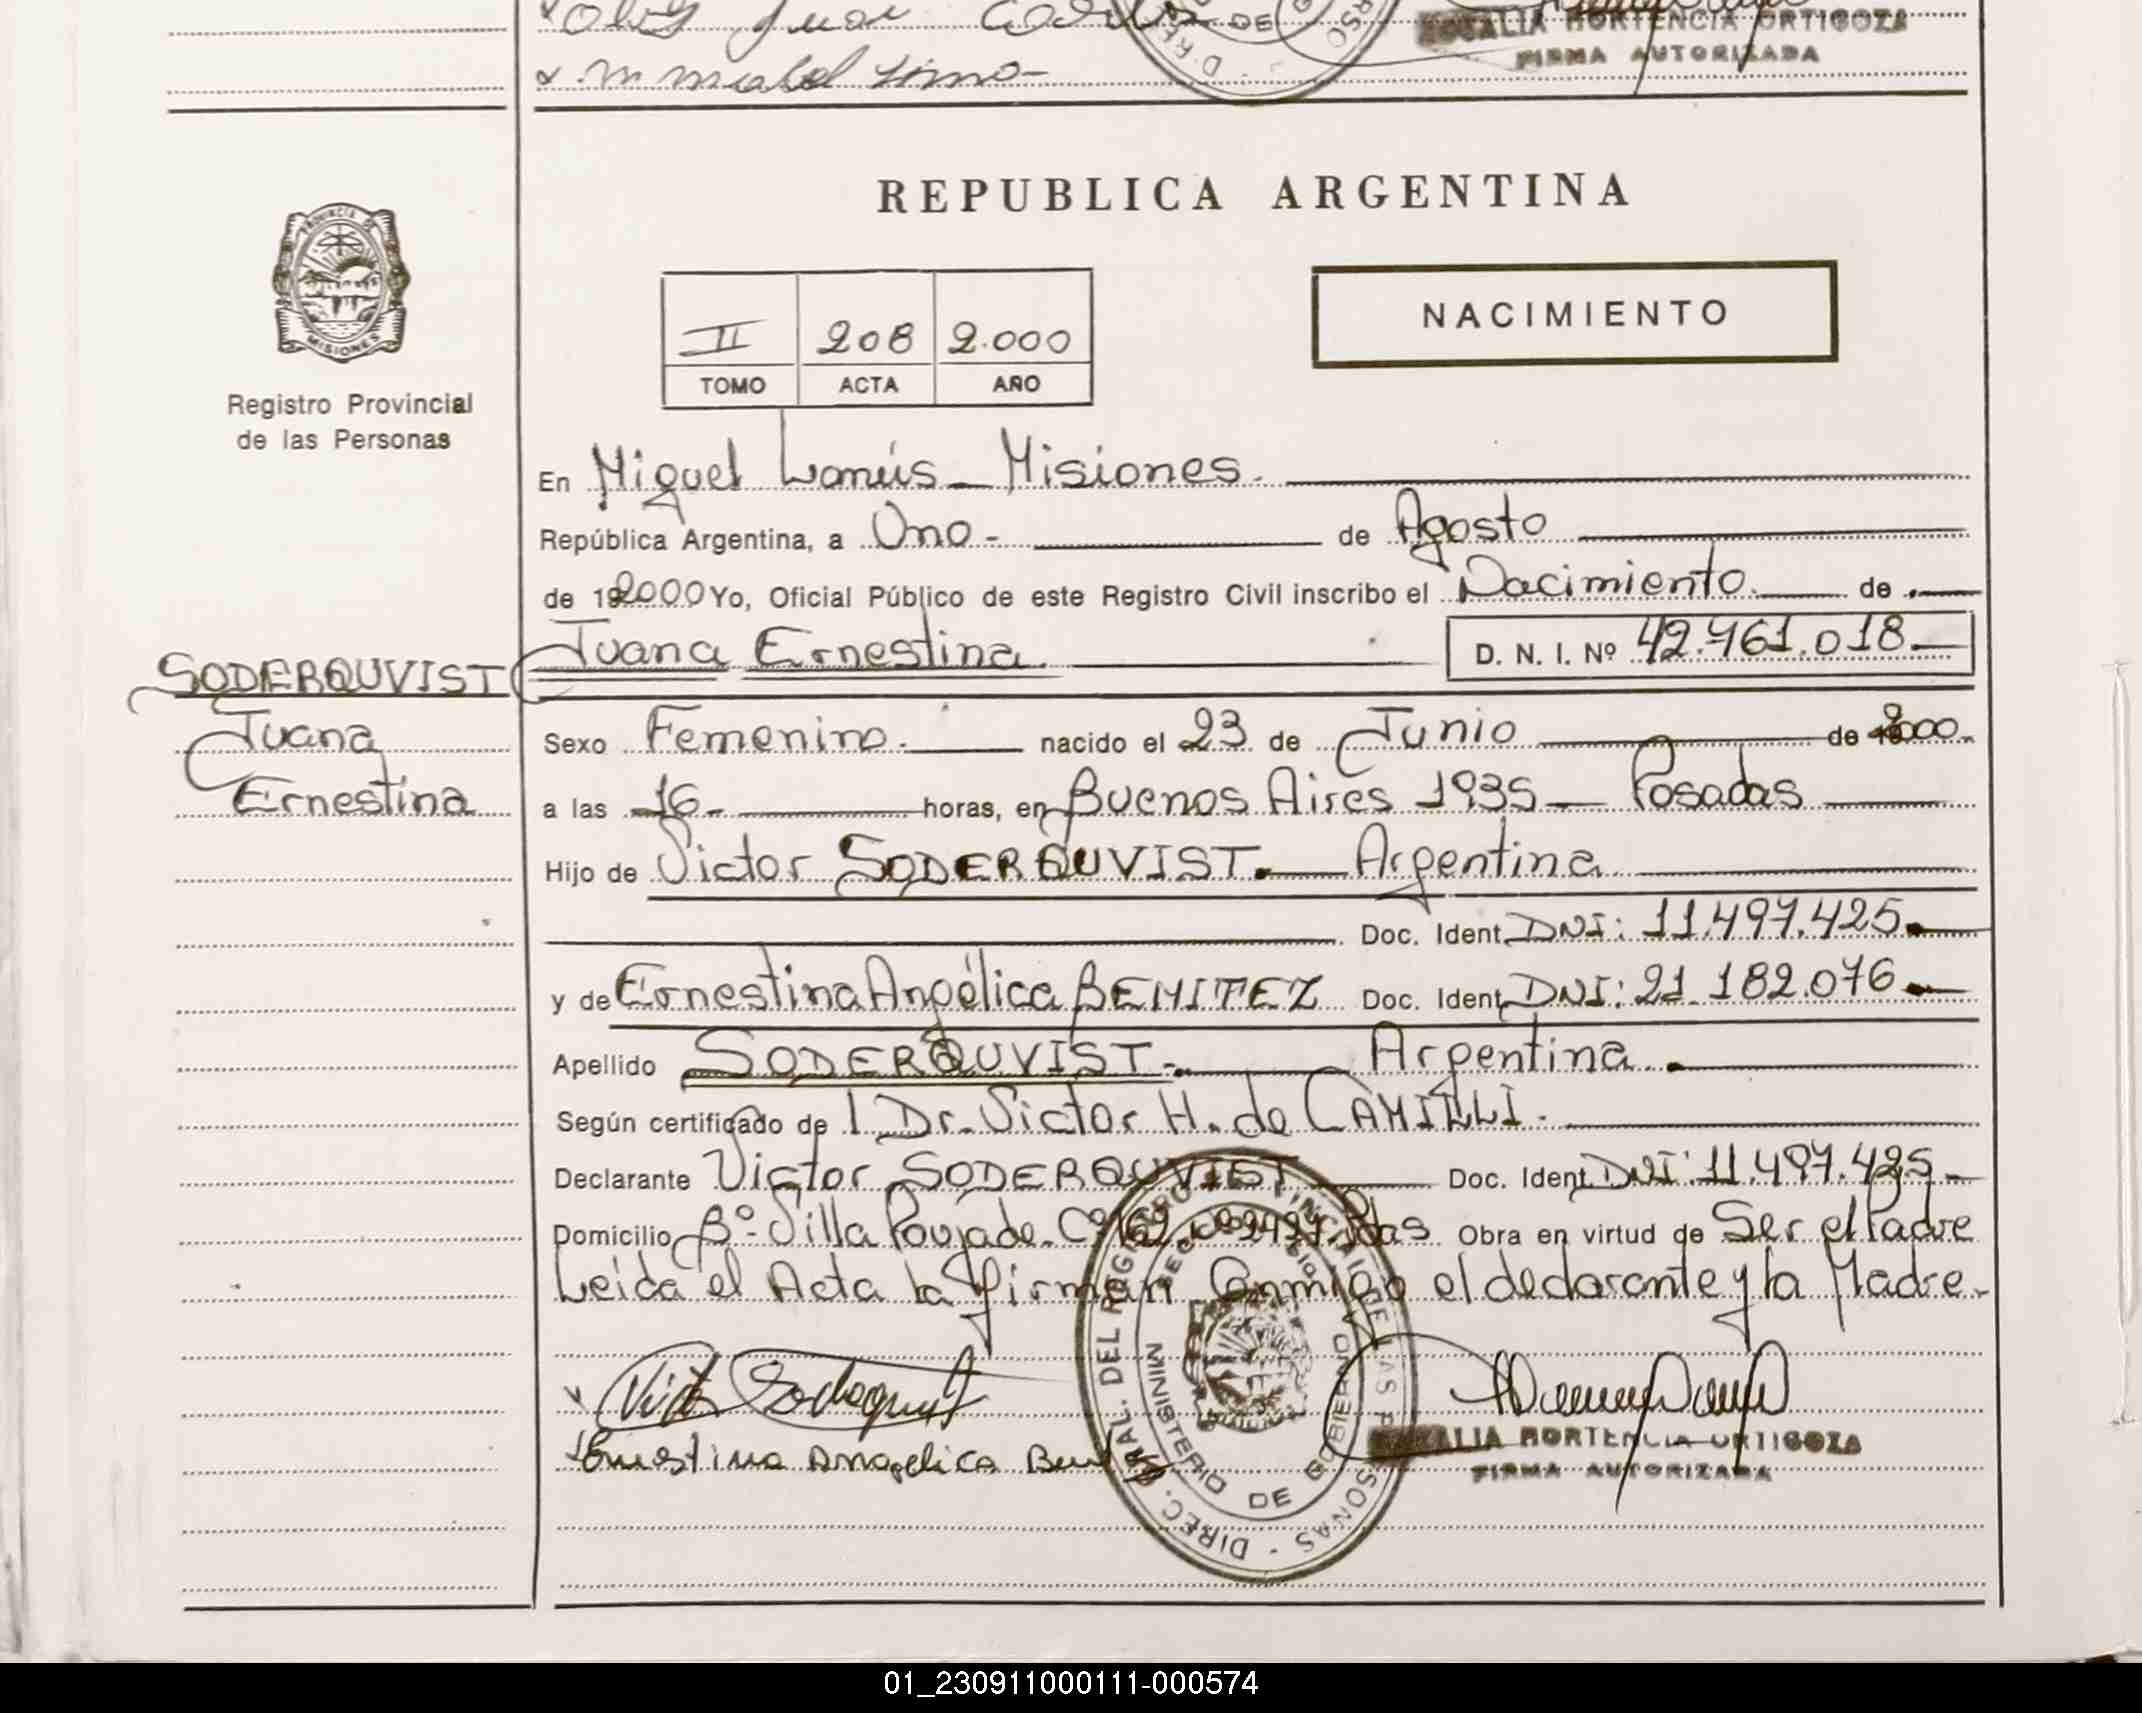 Juan
m mabel
ROSALIA HORTENCIA ORTIGOZA
FIRMA AUTORIZADA
PROVINCIA DE
MISIONES
Registro Provincial
de las Personas
REPUBLICA ARGENTINA
NACIMIENTO
II 208 2.000
TOMO ACTA AÑO
En Miguel Lanús - Misiones.
República Argentina, a Uno - de Agosto
de 192000 Yo, Oficial Público de este Registro Civil inscribo el Nacimiento. de
Juana Ernestina D. N. I. Nº 42.461.018
SODERQUVIST
Juana
Ernestina
Sexo Femenino. nacido el 23 de Junio de 2000.
a las 16- horas, en Buenos Aires 1935 - Posadas
Hijo de Victor SODERQUVIST. Argentina
Doc. Ident. DNI: 11.497.425.
y de Ernestina Angélica BENITEZ Doc. Ident. DNI: 21.182.076
Apellido SODERQUVIST. Argentina.
Según certificado de l Dr. Victor H. de CAMILLI.
Declarante Victor SODERQUVIST Doc. Ident. DNI: 11.497.425
Domicilio Bº. Villa Poujade. Obra en virtud de Ser el Padre
Leida el Acta la firman Conmigo el declarante y la Madre.
Ernestina Angelica
DIREC. GRAL. DEL REGISTRO PROVINCIAL DE LAS PERSONAS
MINISTERIO DE GOBIERNO
ROSALIA HORTENCIA ORTIGOZA
FIRMA AUTORIZADA
01_230911000111-000574